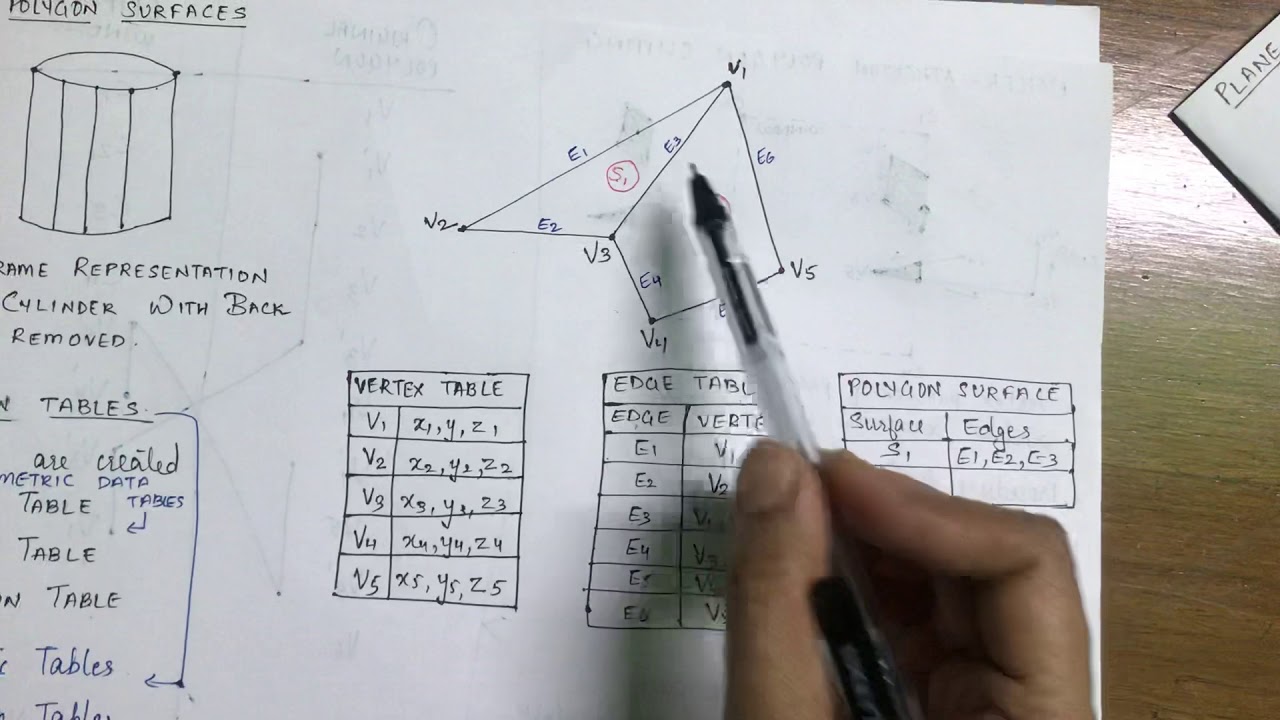 POLYGON SURFACES
RAME REPRESENTATION
CYLINDER WITH BACK
REMOVED.
N TABLES.
are created
METRIC DATA
TABLE TABLES
TABLE
ON TABLE
Tables
Table
V1
E1
E3
E6
S1
V2
E2
V3
V5
E4
E
V4
VERTEX TABLE
V1 x1, y, z1
V2 x2, y2, z2
V3 x3, y3, z3
V4 x4, y4, z4
V5 x5, y5, z5
EDGE TABL
EDGE VERTE
E1 V1
E2 V2
E3 V1
E4 V3
E5
E6 V5
POLYGON SURFACE
Surface Edges
S1 E1, E2, E3
PLANE